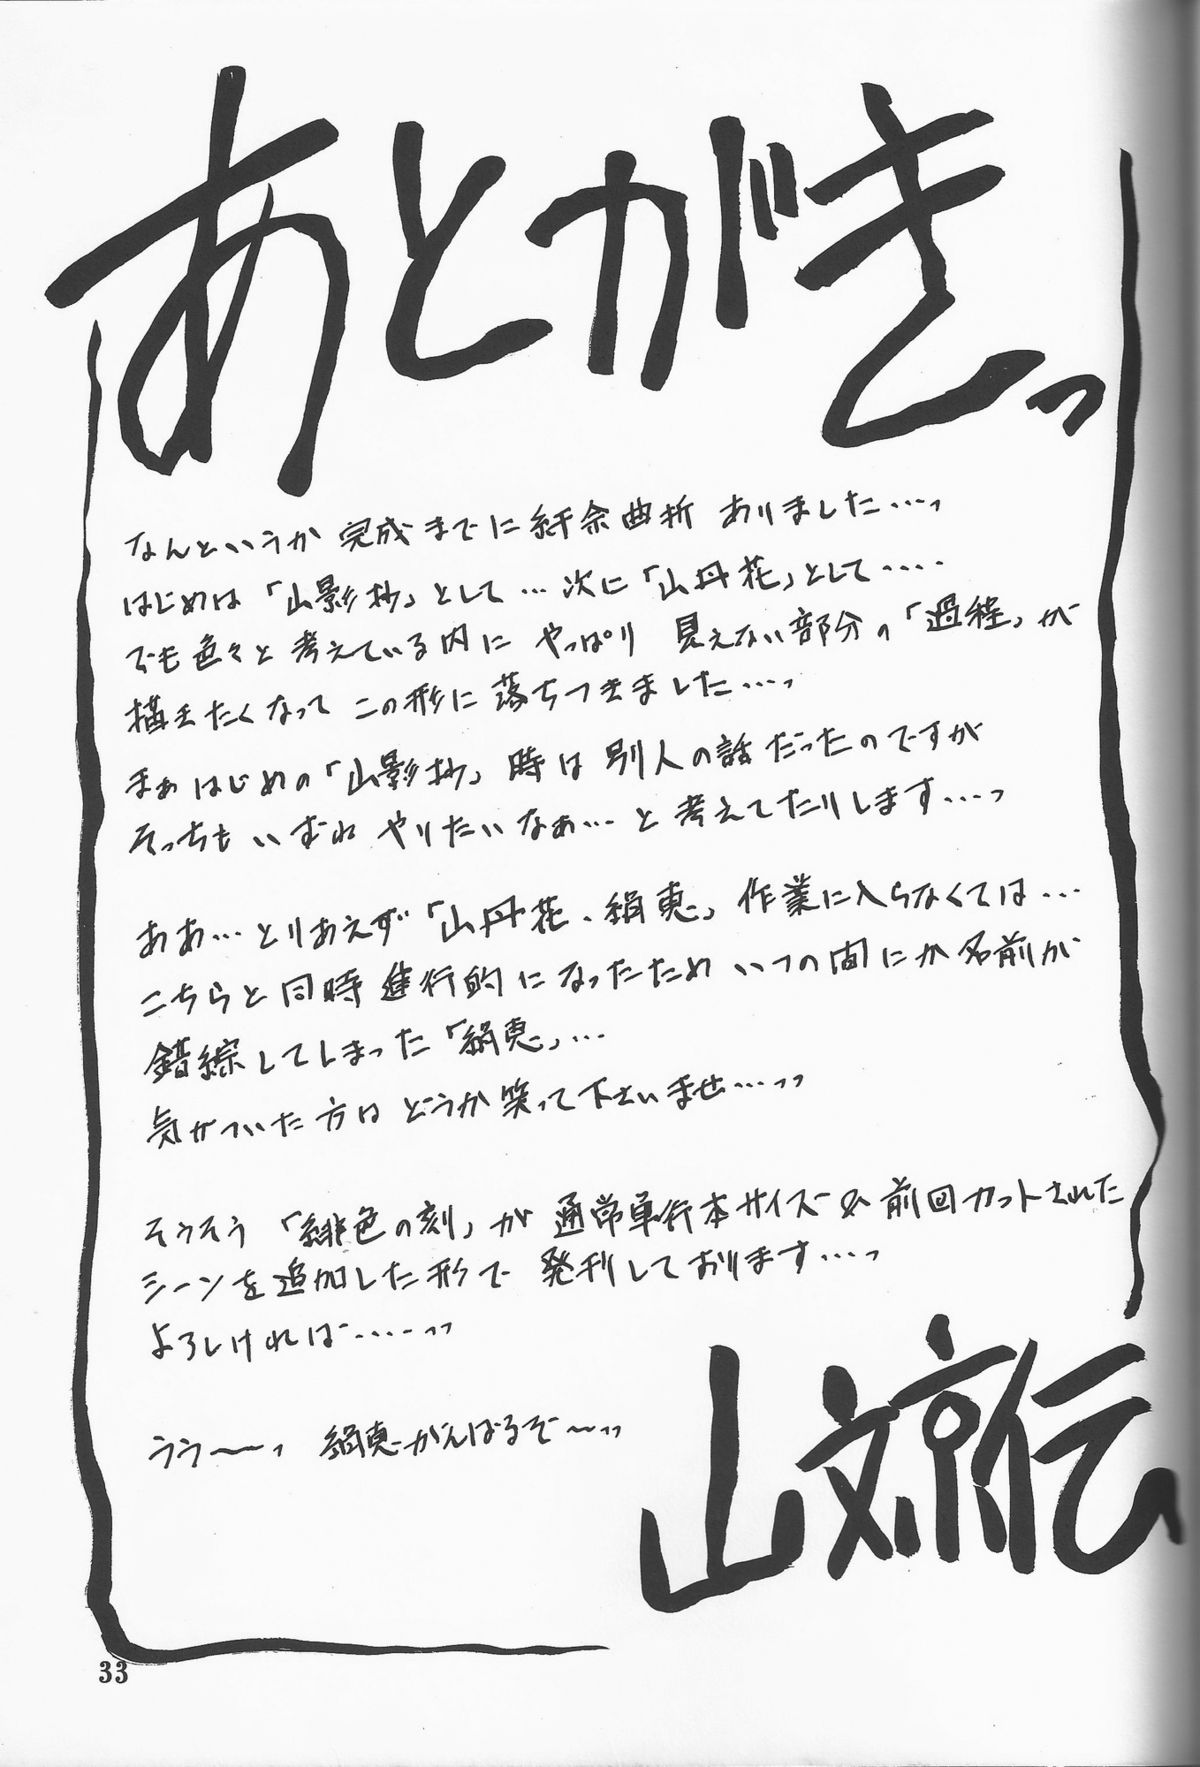 あとがきっ
なんというか 完成までに紆余曲折 ありました…っ
はじめは「山影抄」として…次に「山丹花」として‥‥
でも色々と考えている内に やっぱり 見えない部分の「過程」が
描きたくなって この形に落ちつきました…っ
まぁはじめの「山影抄」時は別人の話だったのですが
そっちもいずれ やりたいなぁ…と考えてたりします…っ
ああ…とりあえず「山丹花・絹恵」作業に入らなくては…
こちらと同時進行的になったため いつの間にか名前が
錯綜してしまった「絹恵」…
気がついた方は どうか笑って下さいませ…っっ
そうそう「緋色の刻」が 通常単行本サイズ& 前回カットされた
シーンを追加した形で 発刊しております…っ
よろしければ‥‥っっ
うぅ〜っ 絹恵がんばるぞ〜っっ
山文京伝
33